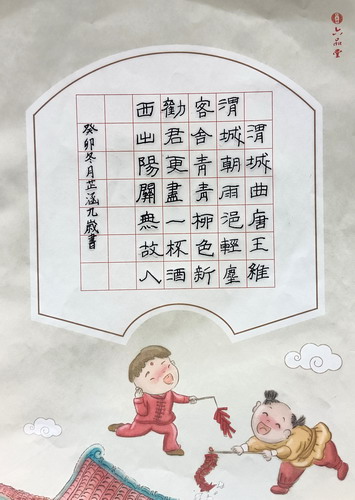 渭城曲唐王維
渭城朝雨浥輕塵
客舍青青柳色新
勸君更盡一杯酒
西出陽關無故人
癸卯冬月芷涵九歲書
六品堂